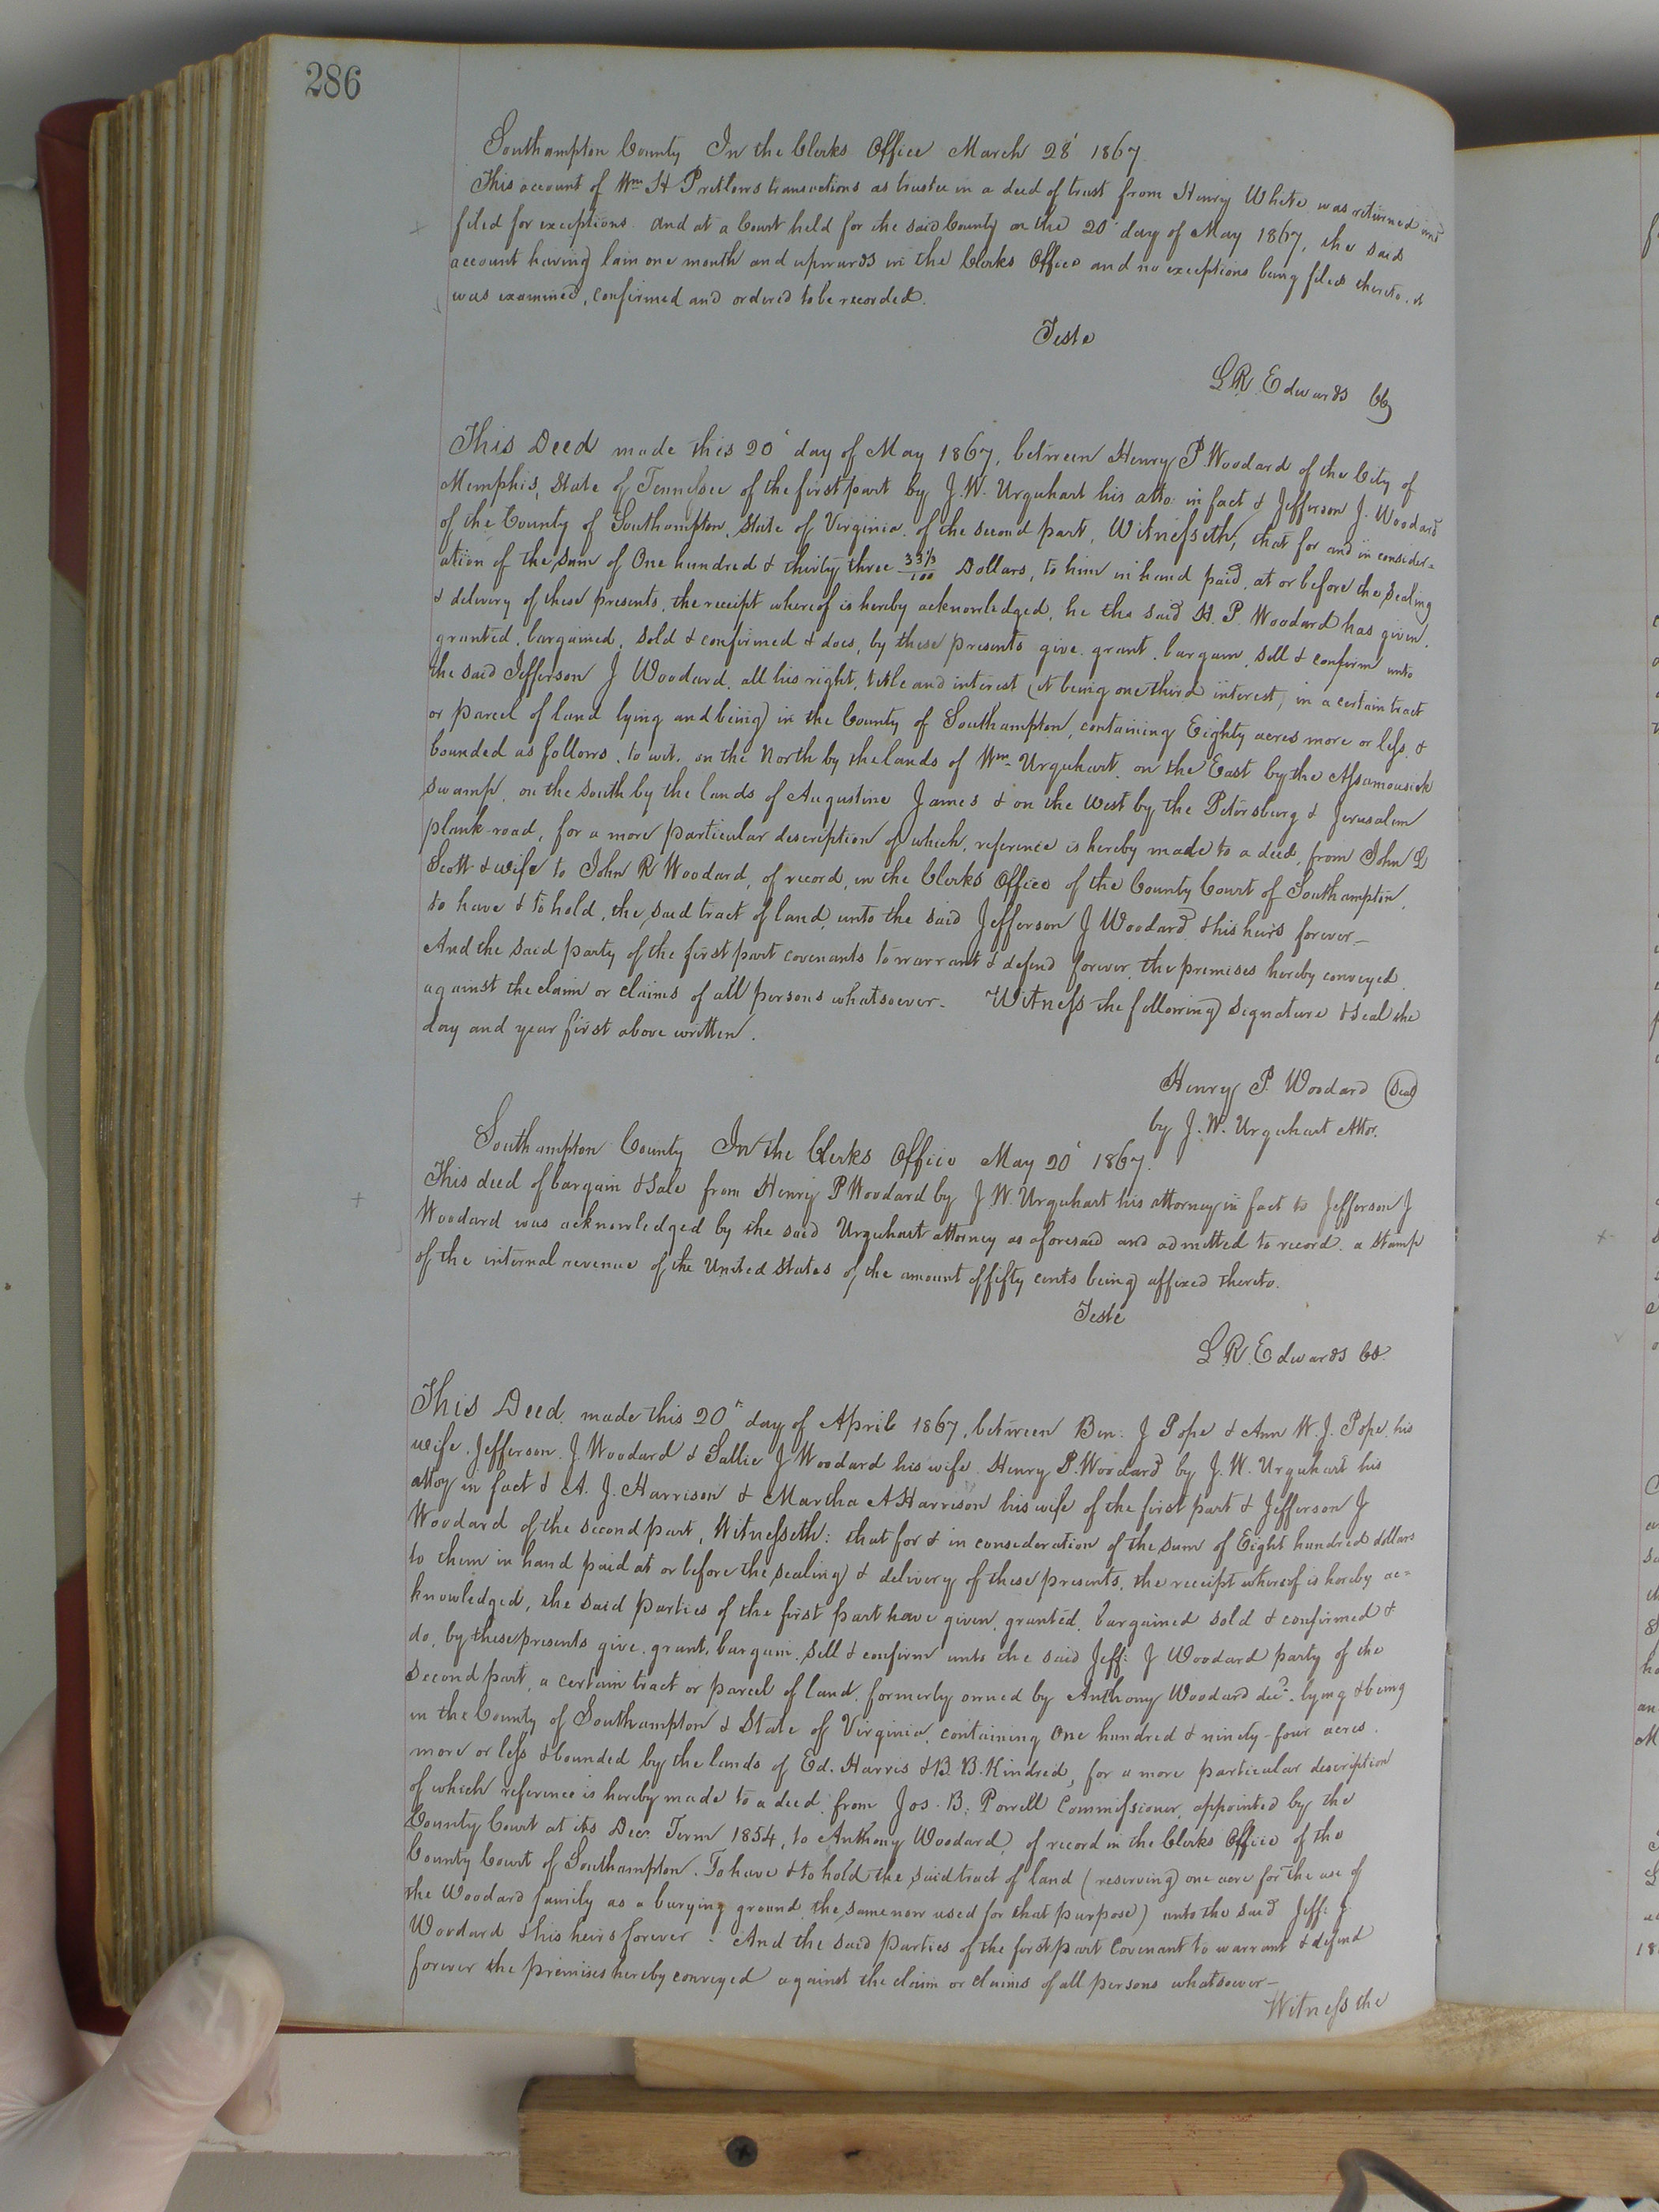 286
Southampton County In the Clerks Office March 28' 1867
This account of Wm H Pretlows transactions as trustee in a deed of trust from Henry White was returned and
filed for exceptions. And at a Court held for the said County on the 20' day of May 1867, the said
account having lain one month and upwards in the Clerks Office and no exceptions being filed thereto. it
was examined, confirmed and ordered to be recorded.
Teste
L R Edwards
This Deed made this 20' day of May 1867, between Henry P. Woodard of the City of
Memphis, State of Tennessee of the first part by J. W. Urquhart his atto. in fact & Jefferson J. Woodard
of the County of Southampton, State of Virginia. of the second part, Witnesseth, that for and in consider=
ation of the sum of One hundred & thirty three 33⅓/100 Dollars, to him in hand paid, at or before the sealing
& delivery of these presents, the receipt whereof is hereby acknowledged, he the said H. P. Woodard has given,
granted, bargained, sold & confirmed & does, by these presents give, grant, bargain, sell & confirm unto
the said Jefferson J Woodard, all his right, title and interest (it being one third interest, in a certain tract
or parcel of land lying and being) in the County of Southampton, containing Eighty acres more or less, &
bounded as follows, to wit. on the North by the lands of Wm Urquhart, on the East by the Assamousick
swamp, on the South by the lands of Augustine James & on the West by the Petersburg & Jerusalem
plank-road, for a more particular description of which, reference is hereby made to a deed, from John L
Scott & wife to John R Woodard, of record, in the Clerks Office of the County Court of Southampton.
to have & to hold, the said tract of land, unto the said Jefferson J Woodard & his heirs forever—
And the said party of the first part covenants to warrant & defend forever, the premises hereby conveyed,
against the claim or claims of all persons whatsoever- Witness the following signature & Seal the
day and year first above written.
Henry P. Woodard Seal
by J. W. Urquhart Attor.
Southampton County In the Clerks Office May 20' 1867.
This deed of bargain & Sale from Henry P Woodard by J. W. Urquhart his attorney in fact to Jefferson J
Woodard was acknowledged by the said Urquhart attorney as aforesaid and admitted to record. a Stamp
of the internal revenue of the United States of the amount of fifty cents being affixed thereto.
Teste
L. R. Edwards
This Deed, made this 20th day of April 1867, between Ben: J Pope & Ann W. J. Pope his
wife, Jefferson. J. Woodard & Sallie J Woodard his wife Henry P. Woodard by J. W. Urquhart his
attoy in fact & A. J. Harrison & Martha A Harrison his wife of the first part & Jefferson J
Woodard of the second part, Witnesseth: that for & in consideration of the sum of Eight hundred dollars
to them in hand paid at or before the sealing & delivery of these presents, the receipt whereof is hereby ac=
knowledged, the said parties of the first part have given, granted, bargained sold & confirmed &
do, by these presents give, grant, bargain, sell & confirm unto the said Jeff: J Woodard party of the
second part, a certain tract or parcel of land, formerly owned by Anthony Woodard decd. lying & being
in the County of Southampton & State of Virginia, containing One hundred & ninety-four acres,
more or less & bounded by the lands of Ed. Harris & B. B. Kindred, for a more particular description
of which reference is hereby made to a deed, from Jos. B: Porrell Commissioner, appointed by the
County Court at its Decr. Term 1854, to Anthony Woodard, of record in the Clerks Office of the
County Court of Southampton. To have & to hold the said tract of land (reserving one acre for the use of
the Woodard family as a burying ground, the same now used for that purpose) unto the said Jeff: J.
Woodard & his heirs forever. And the said parties of the first part Covenant to warrant & defend
forever the premises hereby conveyed against the claim or claims of all persons whatsoever—
Witness the